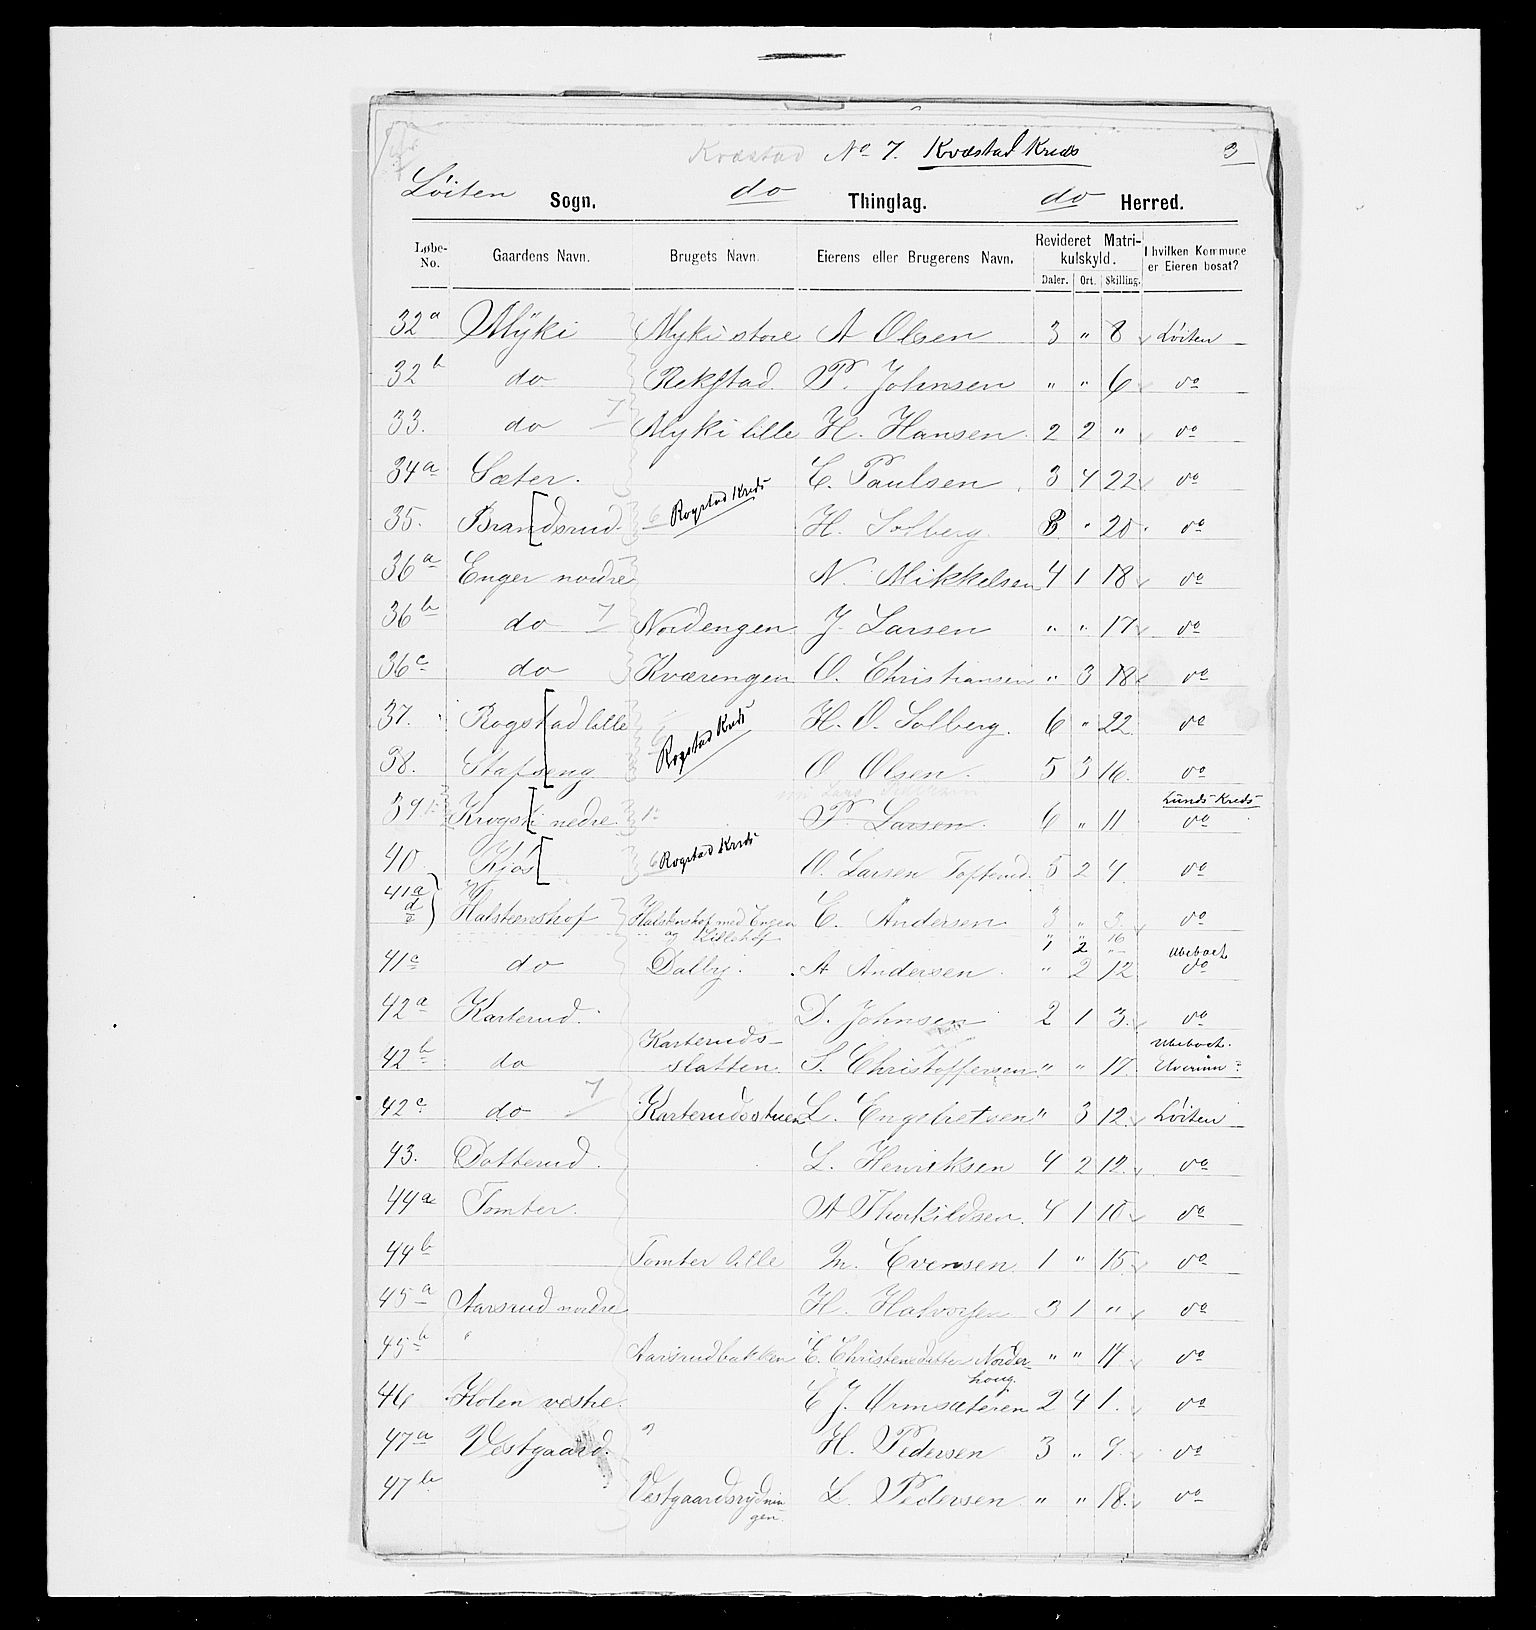 Kvæstad No 7. Kvæstad Kreds 3
Löiten Sogn. do Thinglag. do Herred.
Løbe-No. Gaardens Navn. Brugets Navn. Eierens eller Brugerens Navn. Revideret Matrikulskyld. Daler. Ort. Skilling. I hvilken Kommune er Eieren bosat?
32a Myki Myki store A Olsen 3 " 8 Löiten
32b do Rekstad P. Johnsen " " 6 do
33. do 7 Myki lille H. Hansen 2 2 " do
34a Sæter. C. Paulsen 3 4 22 do
35. Brandsrud 6 Rogstad Kreds H. Solberg. " 20 do
36a Enger nordre N. Mikkelsen 4 1 18 do
36b do 7 Nordengen J. Larsen " " 17 do
36c do Kværengen O. Christiansen " 3 18 do
37. Rogstad lille 6 Rogstad Kreds H. O. Solberg. 6 " 22 do
38. Stafseng O Olsen. 5 3 16. do
39 Krogsti nedre P. Larsen. 6 " 11 Lunds Kreds do
40 Kjös 6 Rogstad Kreds O. Larsen Tofterud. 5 2 4 do
41a d e Halsteenshof Halstenshof med Engen og Lillehof E. Andersen 3 " 5 do
" " 16
1 2 "
41c do Dalby. A Andersen " 2 12 Ubeboet do
42a Karterud. D. Johnsen 2 1 3 do
42b do Karteruds-slatten. S. Christoffersen " " 17. Ubeboet. Elverum
42c do 7 Karterudsstuen L. Engebretsen " 3 12 Löiten
43. Dotterud. L. Henriksen 4 2 12 do
44a Tomter. A Thorkildsen. 4 1 10 do
44b Tomter lille M. Evensen. 1 " 15 do
45a Aarsrud nordre H. Halvorsen 3 1 " do
45b " Aarsrudbakken E. Christensdatter Norderhoug. " " 14 do
46 Holen vestre. E J. Ormsæteren 2 4 1. do
47a Vestgaard. " H. Pedersen 3 " 9 do
47b Vestgaardsrydningen. L. Pedersen " " 18. do